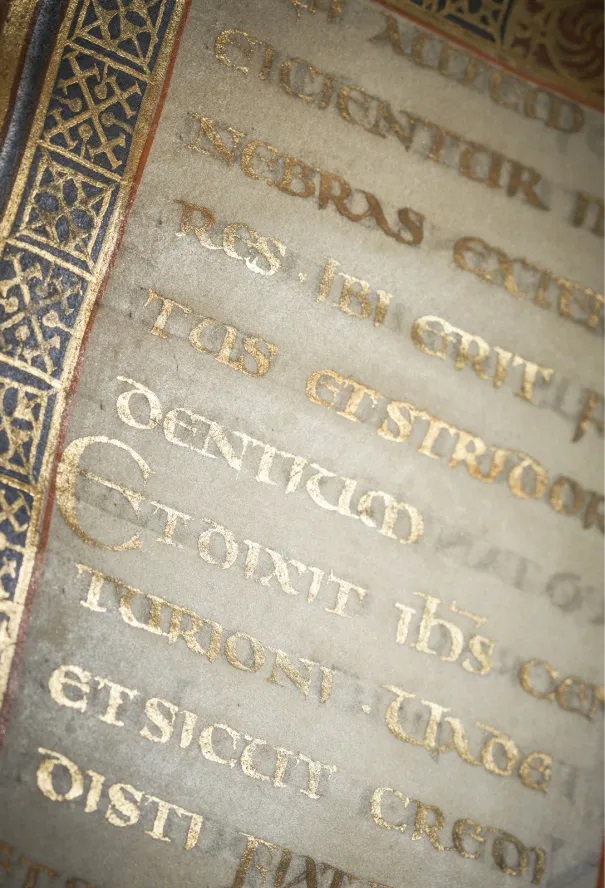 AUTEM
EICIENTUR
NEBRAS EXTE
RES · IBI ERIT
TUS ET STRIDOR
DENTIUM
ET DIXIT ih̅s CEN
TURIONI · UADE
ET SICUT CREDI
DISTI FIAT